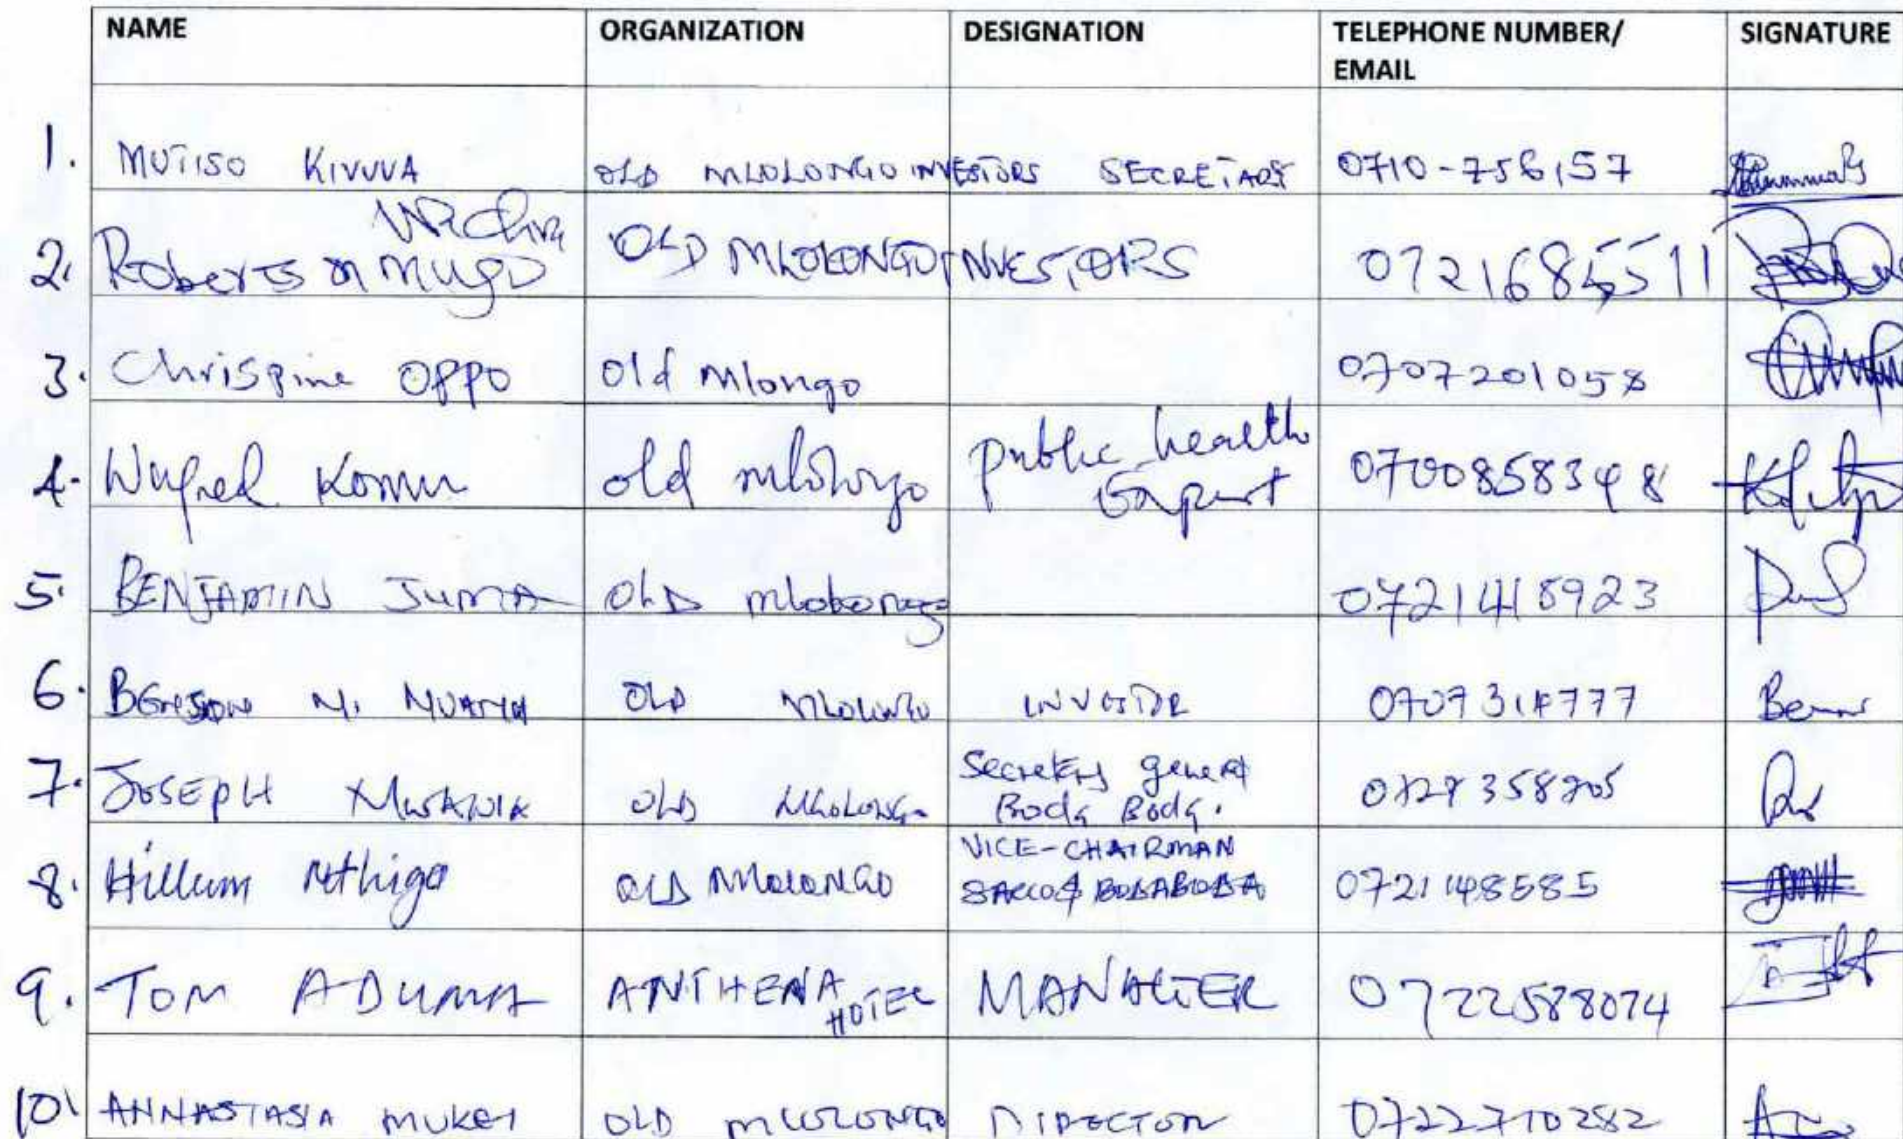 NAME ORGANIZATION DESIGNATION TELEPHONE NUMBER/ EMAIL SIGNATURE
1. MUTISO KIVUVA OLD MLOLONGO INVESTORS SECRETARY 0710-756157
2. Roberts M Mugo OLD MLOLONGO INVESTORS 0721685511
3. Chrispine OPPO Old Mlongo 0707201058
4. Komu old mlolongo public health Expert 0700858398
5. BENJAMIN JUMA OLD mlolongo 0721418923
6. N. OLD MLOLONGO INVESTOR 0707314777
7. JOSEPH OLD MLOLONGO Secretary general Boda Boda.
8. Hillum Nthiga OLD MLOLONGO VICE-CHAIRMAN SACCO & BODABODA 0721148585
9. TOM ADUMA ANTHENA HOTEL MANAGER 0722588074
10. ANNASTASIA MUKEI OLD MLOLONGO DIRECTOR 0722770282